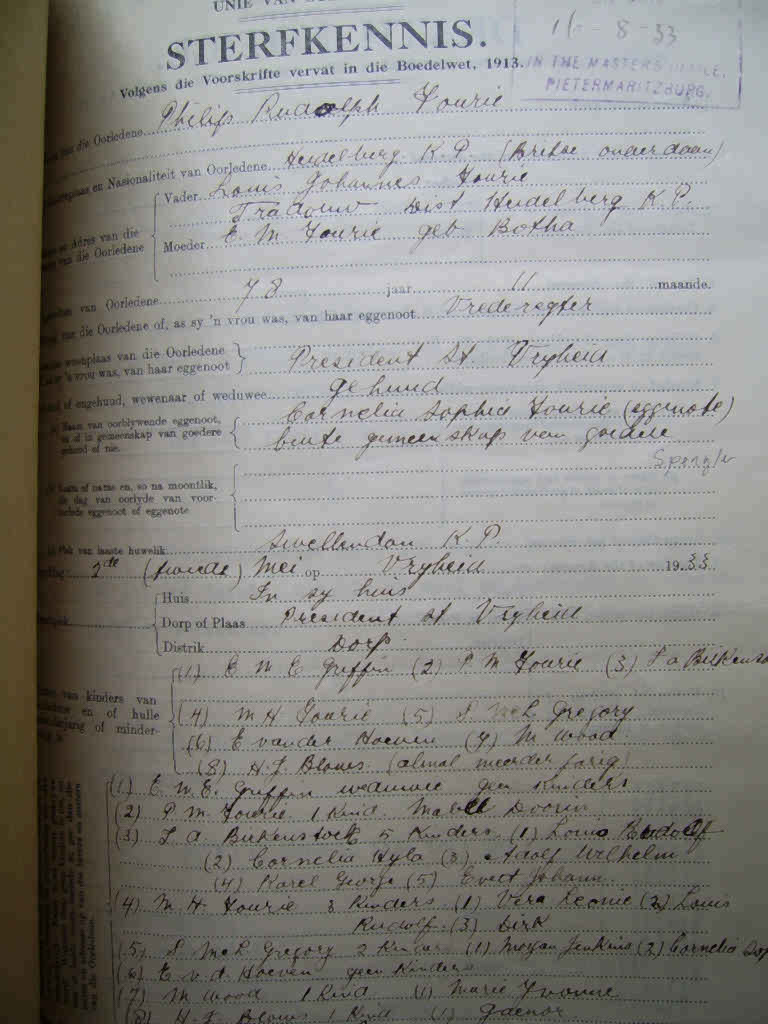 UNIE VAN
11 - 8 - 33
STERFKENNIS.
IN THE MASTER'S OFFICE,
PIETERMARITZBURG.
Volgens die Voorskrifte vervat in die Boedelwet, 1913.
van die Oorledene Philip Rudolph Fourie
en Nasionaliteit van Oorledene Heidelberg K.P. (Britse onderdaan)
Vader Louis Johannes Fourie
Tradouw Dist Heidelberg K.P.
Adres van die
van die Oorledene
Moeder E. M Fourie geb Botha
van Oorledene 78 jaar 11 maande.
van die Oorledene of, as sy 'n vrou was, van haar eggenoot Vrederegter
woonplaas van die Oorledene
'n vrou was, van haar eggenoot
President St. Vryheid
of ongehuud, wewenaar of weduwee gehuud
Naam van oorblywende eggenoot,
en of in gemeenskap van goedere
gehuud of nie.
Cornelia Sophia Fourie (eggenote)
buite gemeenskap van goedere
Naam of name en, so na moontlik,
die dag van oorlyde van voor-
eggenoot of eggenote
Plek van laaste huwelik Swellendam K.P.
2de (tweede) Mei op Vryheid 1933
Huis In sy huis
Dorp of Plaas President St Vryheid
Distrik Dorp
(1) E M E Griffin (2) P. M Fourie (3)
van kinders van
en of hulle
of minder-
(4) M H Fourie (5) S McL Gregory
(6) E van der Hoeven (7) M Wood
(8) H. J. Blows (almal meerderjarig)
(1) E. M. E. Griffin weduwee geen kinders
(2) P. M. Fourie 1 Kind. Doorn
(3) Birkenstock 5 Kinders (1) Louis Rudolf
(2) Cornelia Hyla (3) Adolf Wilhelm
(4) Karel George (5) Evert Johann
(4) M. H. Fourie 3 Kinders (1) Vera Leonie (2) Louis
Rudolf (3) Dirk
(5) S McL Gregory 2 Kinders (1) Megan Jenkins (2) Cornelia
(6) E v. d. Hoeven geen Kinders
(7) M Wood 1 Kind (1) Marie Yvonne
(8) H. J. Blows 1 Kind (1) Gaenor